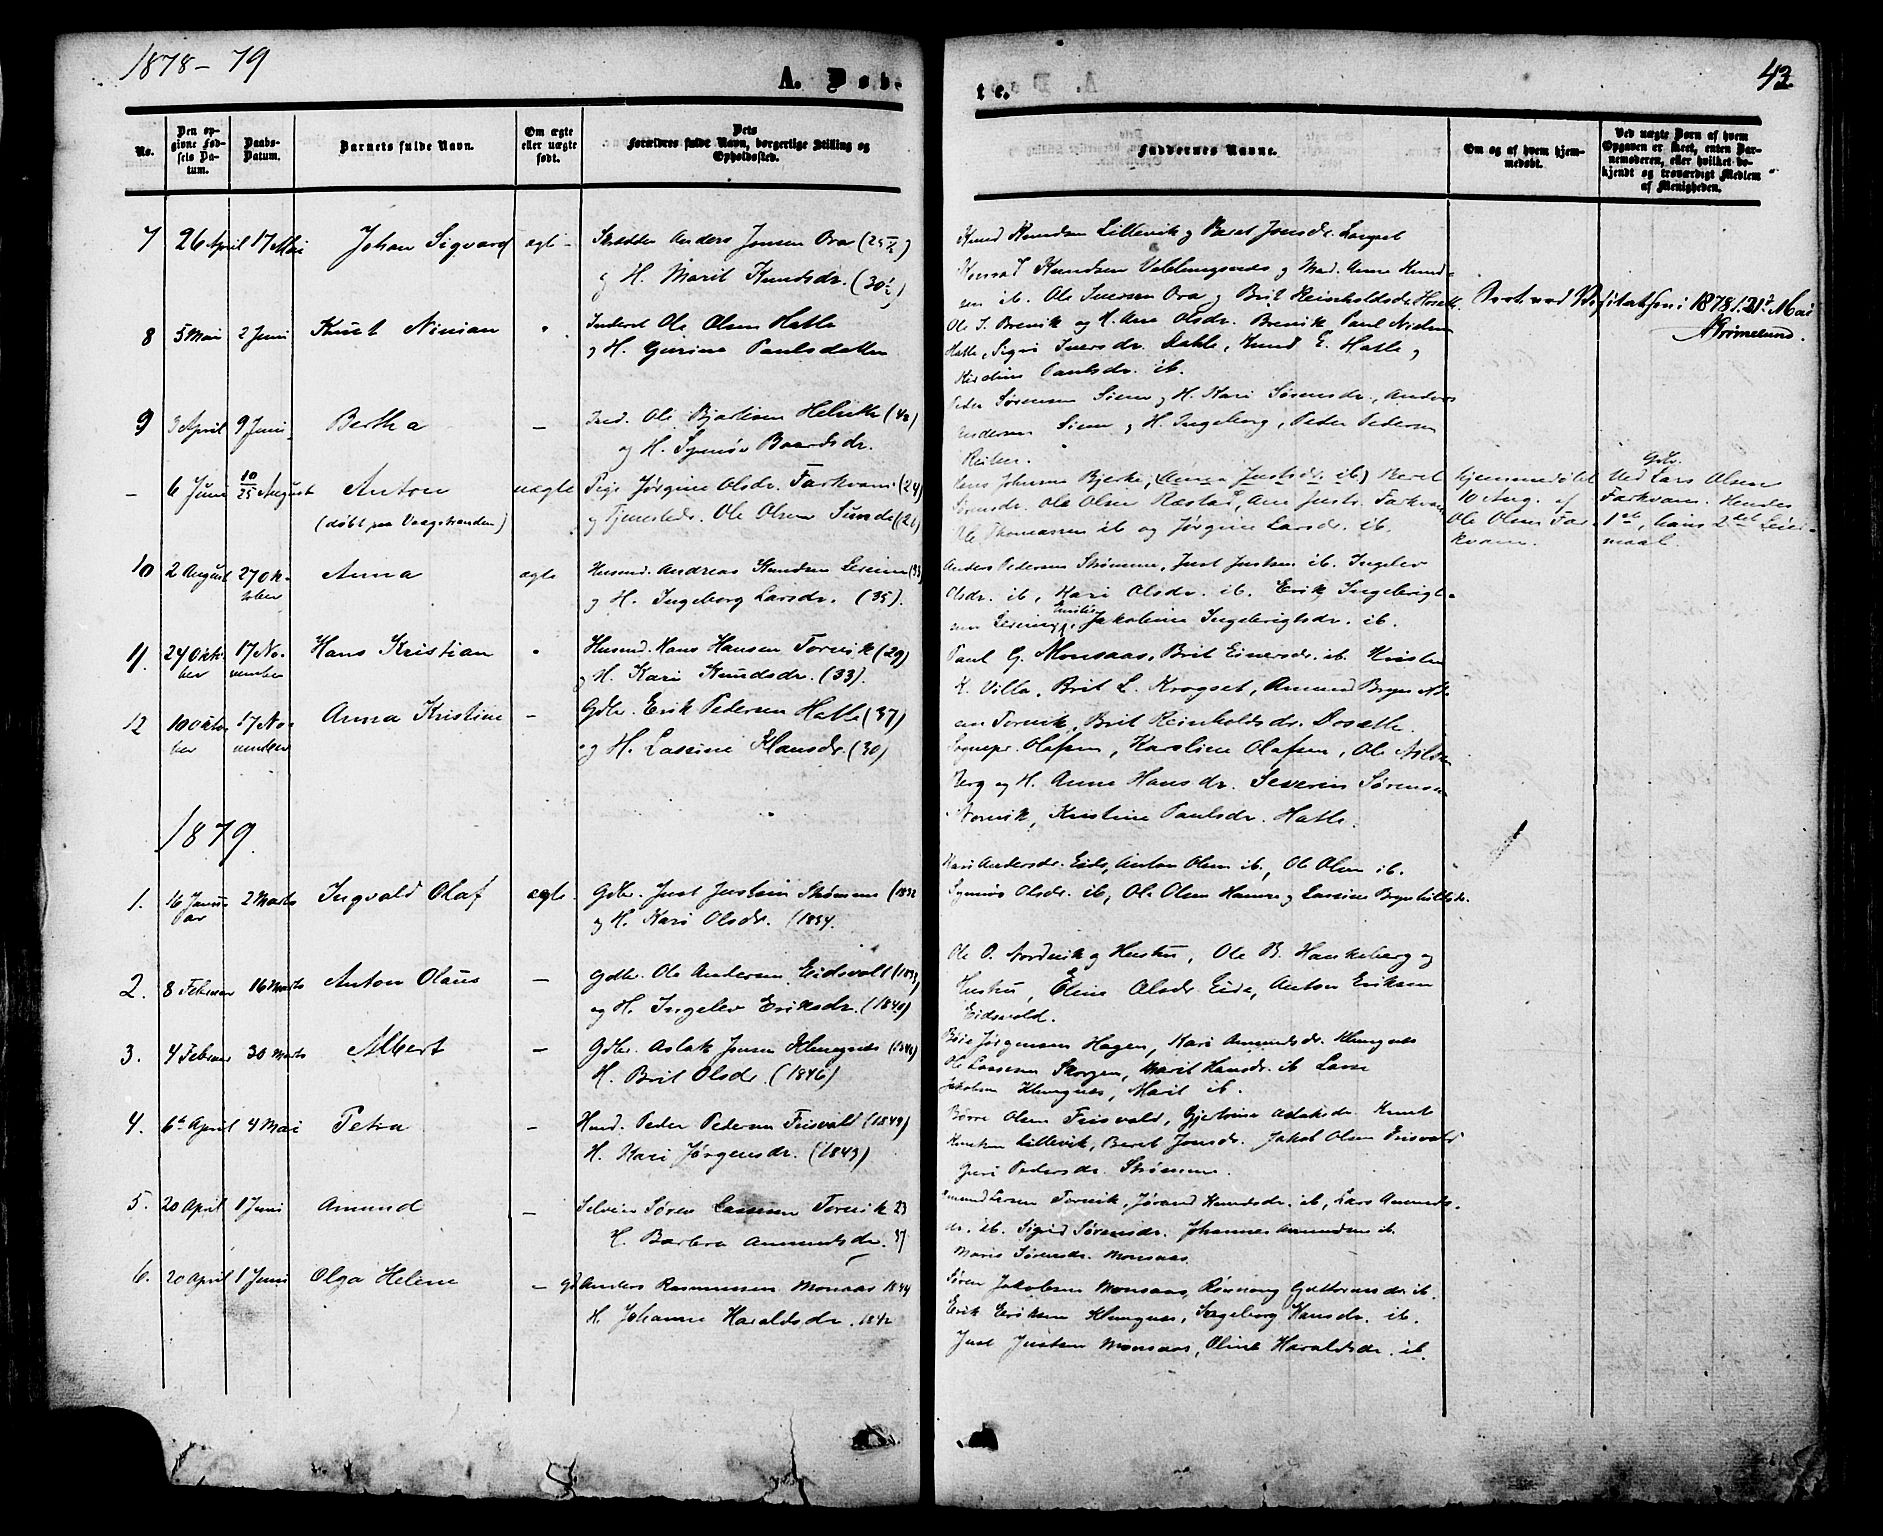 1878-79
A. Døb-
te.
43
No.
Den op-
givne Fød-
sels Da-
tum.
Daabs-
Datum.
Barnets fulde Navn.
Om ægte
eller uægte
født.
Dets
Forældres fulde Navn, borgerlige Stilling og
Opholdssted.
Faddernes Navne.
Om og af hvem hjem-
medøbt.
Ved uægte Børn af hvem
Opgaven er skeet, enten Bar-
nemoderen, eller hvilket be-
kjendt og troværdigt Medlem
af Menigheden.
7 26 April 17 Mai Johan Sigvard ægte Anders Jonsen Ora (25 ½)
og H. Marit Knudsdr. (30 ½)
Knud Knudsen Lillevik og Beret Jonsdr.
Knudsen og Mad. Anne Knud-
sen ib. Ole Iversen Ora og Brit Reinholdsdr.
ved Visitatsen i 1878 21de Mai
8 5 Mai 2 Juni Knut Ninian Ole Olsen Hatle
og H. Gurine Paulsdatter
Ole I. Brevik og H. Ane Olsdr. Brevik Paul Nielsen
Hatle, Sigri Iversdr. Dahle, Knud E. Hatle og
Paulsdr. ib.
9 3 April 9 Juni Bertha — Ole (42)
og H. Synnøv Baardsdr.
Peder Sørensen Siem og H. Kari Sørensdr., Anders
Andersen Siem og H. Ingeborg, Peder Pedersen
Reiten.
— 6 Juni 10/25 August Anton uægte Pige Jørgine Olsdr. Farkvam (24)
(døbt paa Vaagstranden) og Tjenestedr. Ole Olsen Sunde (21)
Johnsen Bjerke, (Anna Justsdr. ib) Beret
Sørensdr. Ole Olsen Ræstad, Ane Justs. Farkvam
Ole Thomassen ib og Jørgine Larsdr. ib.
hjemmedøbt
10 Aug. af
Ole Olsen Far-
kvam.
Gdbr.
Ved Lars Olsen
Farkvam. Hendes
1ste, hans 2det Leier-
maal.
10 2 August 27 Ok-
tober Anna ægte Husmd. Andreas Knudsen (33)
og H. Ingeborg Larsdr. (35).
Anders Pedersen Strømme, Just Justsen ib. Ingelev
Olsdr. ib, Kari Olsdr. ib. Erik Ingebrigt-
sen Jakobine Ingebrigtsdr. ib.
11. 24 Okto-
ber 17 No-
vember Hans Kristian Husmd. Hans Hansen Torvik (29)
og H. Kari Knudsdr. (33).
Paul G. Monsaas, Brit Einersdr. ib. Kristen
K. Villa, Brit L. Krogset, Amund
Torvik, Brit Reinholdsdr.
12 10 Okto-
ber 17 No-
vember Anna Kristine — Gdbr. Erik Pedersen Hatle (37)
og H. Lassine Hansdr. (30)
Sognepr. Olafsen, Karoline Olafsen, Ole Nilsen
Berg og H. Anne Hansdr. Severin Sørensen
Norvik, Kristine Paulsdr. Hatle.
1879.
1. 16 Janu-
ar 2 Marts Ingvald Olaf ægte. Gdbr. Just Justsen Strømme (1832
og H. Kari Olsdr. (1834.
Kari Andersdr. Eide, Anton Olsen ib., Ole Olsen ib.
Synnøv Olsdr. ib, Ole Olsen Hamre og Lassine Brynhildsdr.
2. 8 Februar 16 Marts Anton Olaus — Gdbr. Ole Andersen Eidsvold
og H. Ingelev Eriksdr. (1840)
Ole O. Nordvik og Hustru, Ole B. Haukeberg og
Hustru, Eline Olsdr. Eide, Anton Eriksen
Eidsvold.
3. 4 Februar 30 Marts Albert — Gdbr. Aslak Jonsen Klungnes
H. Brit Olsdr. (1846)
Jørgensen Hagen, Kari Amundsdr. Klungnes
Ole Lassesen Skorgen, Marit Hansdr. ib Lasse
Jakobsen Klungnes, Marit ib.
4. 6te April 4 Mai Petra — Husmd. Peder Pedersen Frisvold (1849)
H. Kari Jørgensdr. (1843)
Børre Olsen Frisvold, Gjertrine Aslaksdr. Knut
Knutsen Lillevik, Beret Jonsdr. Jakob Olsen Frisvold
Guri Pedersdr. Strømme.
5. 20 April 1 Juni Amund — Selveier Søren Lassesen Torvik 23
H. Barbra Amundsdr. 37
Amund Larsen Torvik, Jørand Knudsdr. ib, Lars Amunds-
ib. Sigrid Sørensdr. Johannes Amundsen ib.
Marit Sørensdr. Monsaas.
6. 20 April 1 Juni Olga Helene — Gd Anders Rasmussen Monsaas 1844
H. Johanne Haraldsdr. 1842
Søren Jakobsen Monsaas, Rønnaug Guttormsdr. ib.
Erik Eriksen Klungnes, Ingeborg Hansdr. ib.
Just Justsen Monsaas, Oline Haraldsdr. ib.